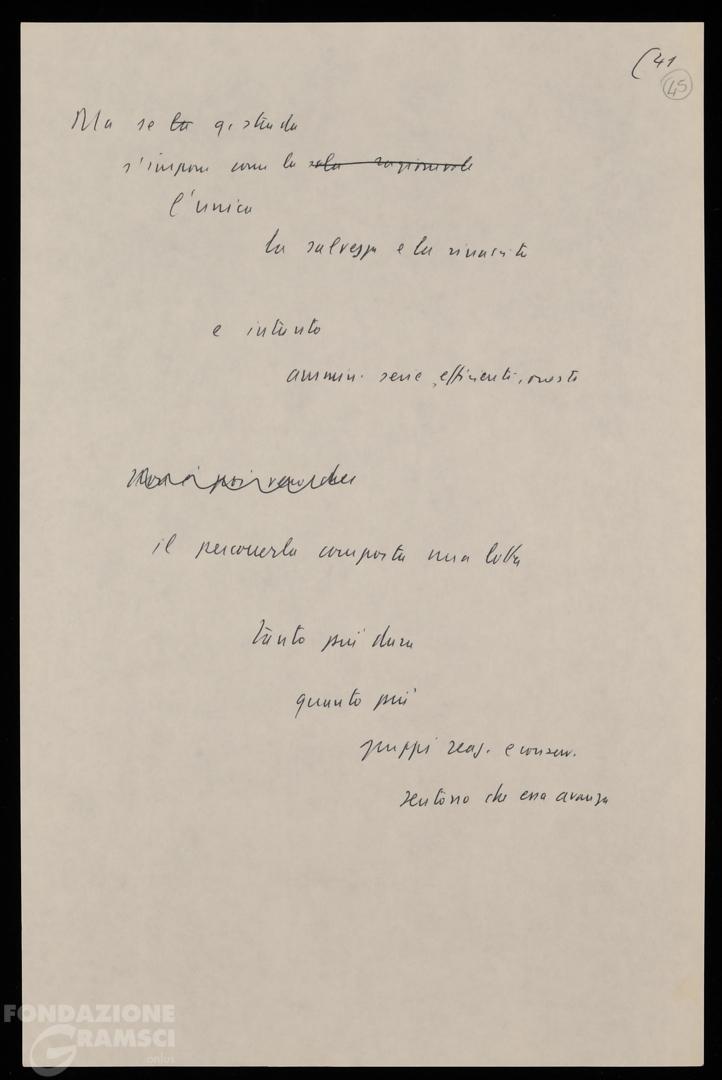 (41
45
Ma se la q. strada
s'impone come la sola ragionevole
l'unica
la salvezza e la rinascita
e intanto
ammin. serie, efficienti, oneste
il percorrerla comporta una lotta
tanto più dura
quanto più
gruppi reaz. e conserv.
sentono che essa avanza
FONDAZIONE
GRAMSCI
onlus